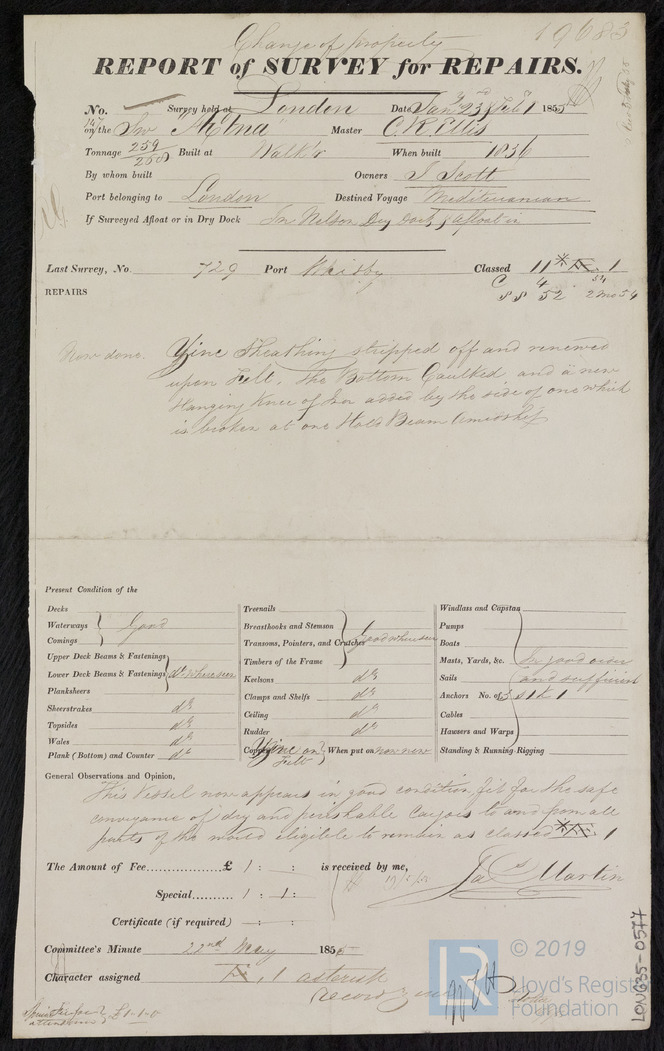 Change of property
19683
REPORT of SURVEY for REPAIRS.
No. Survey held at London Date Jany 23 & Feby 1 1855
147 on the Sw Aetna Master C.R. Ellis
Tonnage 259/260 Built at Walk'r When built 1836
By whom built Owners J Scott
Port belonging to London Destined Voyage Mediteranian
If Surveyed Afloat or in Dry Dock In Nelson Dry Dock & afloat in
Last Survey, No. 729 Port Whitby Classed 11 * Æ. 1
C 4 54
S S 52 2 Mo 54
REPAIRS
Now done. Zinc Sheathing stripped off and renewed
upon Felt. The Bottom Caulked and a new
Hanging Knee of Iron added by the side of one which
is broken at one Hold Beam Amidships
Present Condition of the
Decks
Waterways Good
Comings
Upper Deck Beams & Fastenings
Lower Deck Beams & Fastenings do where seen
Planksheers
Sheerstrakes do
Topsides do
Wales do
Plank (Bottom) and Counter do
Treenails
Breasthooks and Stemson
Transoms, Pointers, and Crutches Good where seen
Timbers of the Frame
Keelsons do
Clamps and Shelfs do
Ceiling do
Rudder do
Copper Zinc on Felt When put on now new
Windlass and Capstan
Pumps
Boats
Masts, Yards, &c. In good order
Sails and sufficient
Anchors No. of 3 S 1 K 1
Cables
Hawsers and Warps
Standing & Running Rigging
General Observations and Opinion,
This Vessel now appears in good condition, fit for the safe
conveyance of dry and perishable Cargoes to and from all
parts of the world eligible to remain as classed * Æ. 1
The Amount of Fee £ 1 : : is received by me,
Special 1 : 1 : Jas Martin
Certificate (if required) : :
Committee's Minute 22nd May 1855
Character assigned Æ, 1 asterisk
record
£1-1-0
LON635-0577
LR © 2019
Lloyd's Register
Foundation